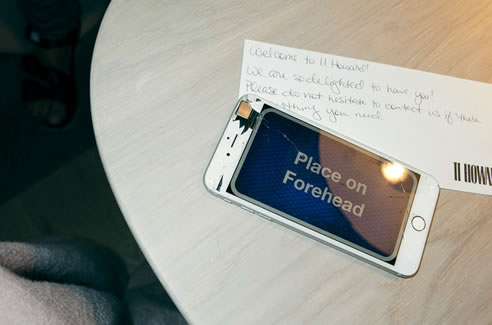 Welcome to 11 Howard!
We are so delighted to have you!
Please do not hesitate to contact us if there
anything you need.
Place on
Forehead
11 HOWA